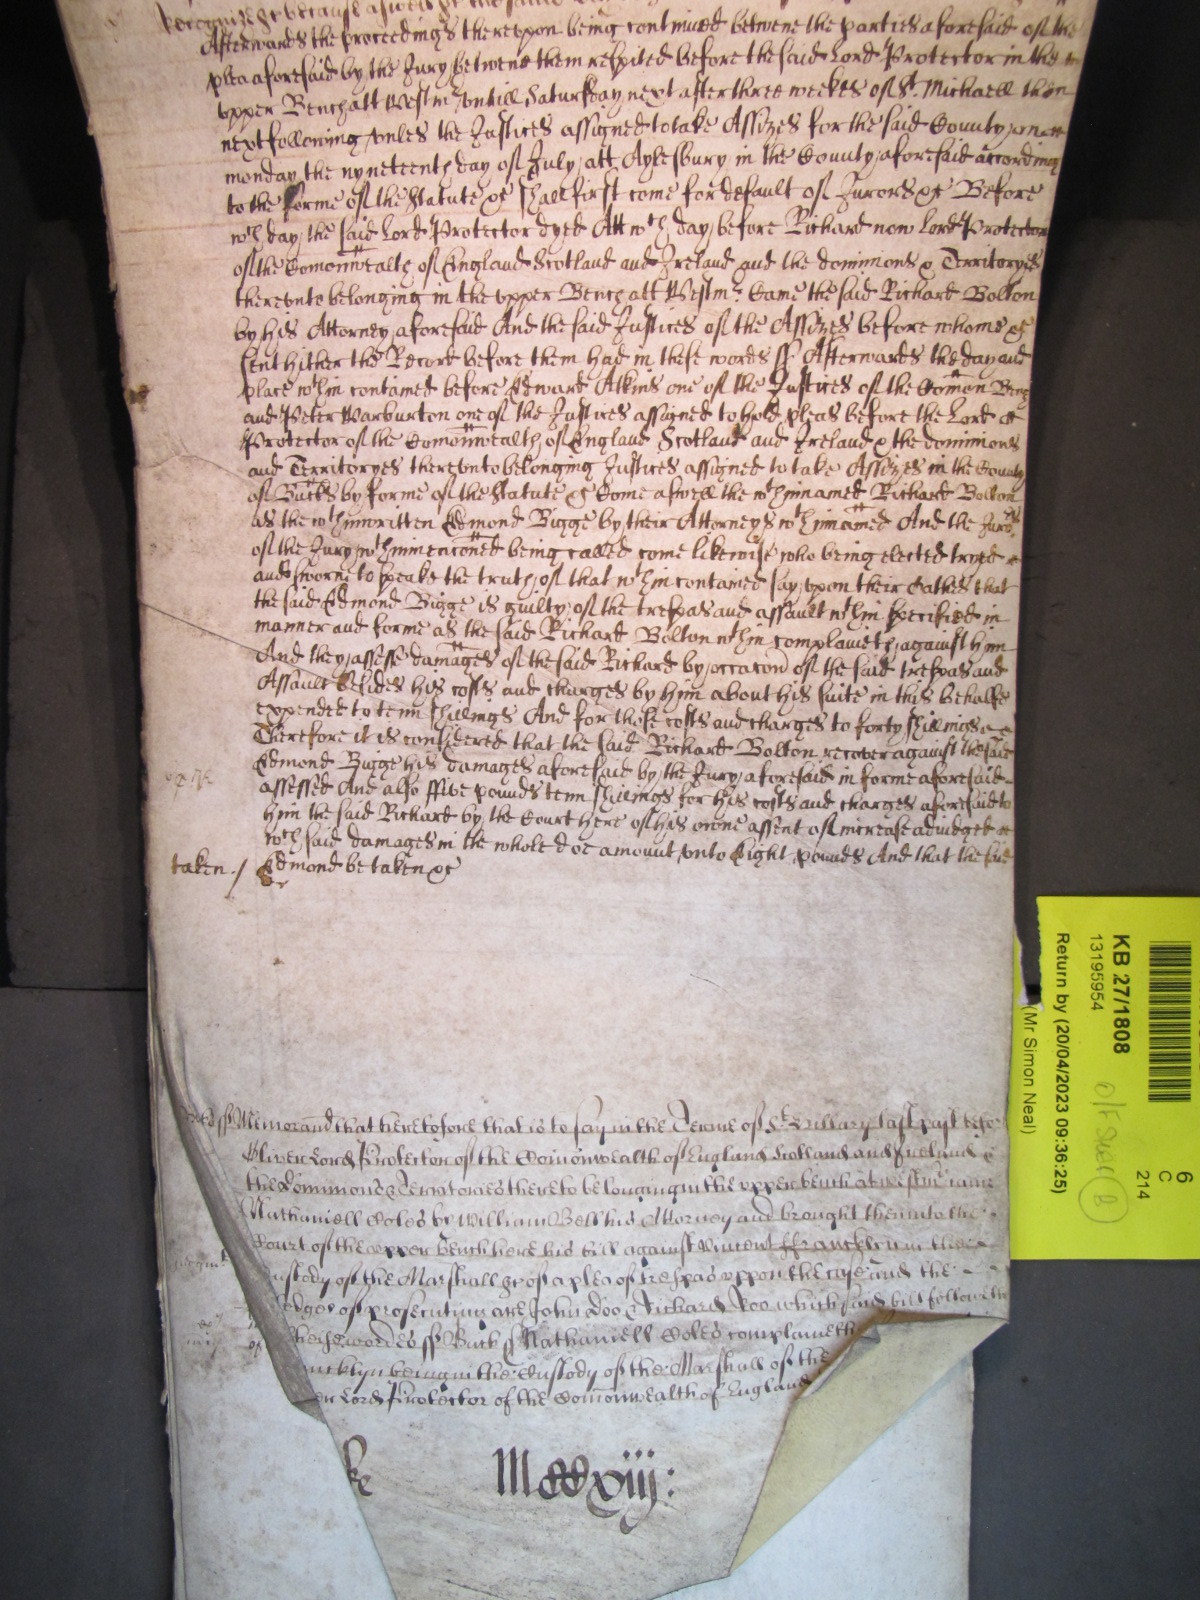 Recognize &c because aswell &c the said
Afterwards the proceedings thereupon being continued betwene the parties aforesaid of the
plea aforesaid by the Jury betwene them respited before the said Lord Protector in the
upper Bench att Westmr untill Saturday next after three weekes of St. Michaell then
next following unles the Justices assigned to take Assizes for the said County
monday the nyneteenth day of July att Aylesbury in the County aforesaid according
to the forme of the Statute &c shall first come for default of Jurors &c Before
wch day the said Lord Protector dyed Att wch day before Richard now Lord Protector
of the Comonwealth of England Scotland and Ireland and the dominions & Territoryes
thereunto belonging in the upper Bench att Westmr: Came the said Richard Bolton
by his Attorney aforesaid And the said Justices of the Assizes before whome &c
sent hither the Record before them had in these words ss Afterwards the day and
place wthin contained before Edward Atkins one of the Justices of the Comon Bench
and Peter Warburton one of the Justices assigned to hold pleas before the Lord
Protector of the Comonwealth of England Scotland and Ireland & the dominions
and Territoryes thereunto belonging Justices assigned to take Assizes in the County
of Bucks by forme of the Statute &c Come aswell the wthinnamed Richard Bolton
as the wthinwritten Edmond Bigge by their Attorneys wthinnamed And the Juro:rs
of the Jury wthinmenconed being called come likewise who being elected tryed
and sworne to speake the truth of that wthin contained say upon their Oathes that
the said Edmond Bigge is guilty of the trespas and assault wthin specified in
manner and forme as the said Richard Bolton wthin complaineth against him
And they assesse damages of the said Richard by occacon of the said trespas and
Assault besides his costs and charges by him about his suite in this behalfe
expended to tenn shillings And for those costs and charges to forty shillings
Therefore it is considered that the said Richard Bolton recover against the said
Edmond Bigge his damages aforesaid by the Jury aforesaid in forme aforesaid
assessed And also ffive pounds tenn shillings for his costs and charges aforesaid to
him the said Richard by the Court here of his owne assent of increase adiudged
wch said damages in the whole doe amount unto Eight pounds And that the said
taken./ Edmond be taken &c
ss Memorand that heretofore that is to say in the Terme of St. Hillary last past before
Oliver Lord Protector of the Comonwealth of England Scotland and Ireland &
the Dominions & Territories thereto belonging in the upper bench at Westmr came
Nathaniell Coles by William Bell his Attorney and brought then into the
Court of the upper bench here his bill against Vincent ffrancklyn in the
Custody of the Marshall &c of a plea of trespas uppon the case and the
pledges of prosecuting are John Doo & Richard Roo which said bill followeth
these wordes ss Buck ss Nathaniell Coles complaineth
ncklyn being in the Custody of the Marshall of the
er Lord Protector of the Comonwealth of England
ke MCCxiij:
KB 27/1808
13195954
Return by (20/04/2023 09:36:25)
(Mr Simon Neal)
6
C
214